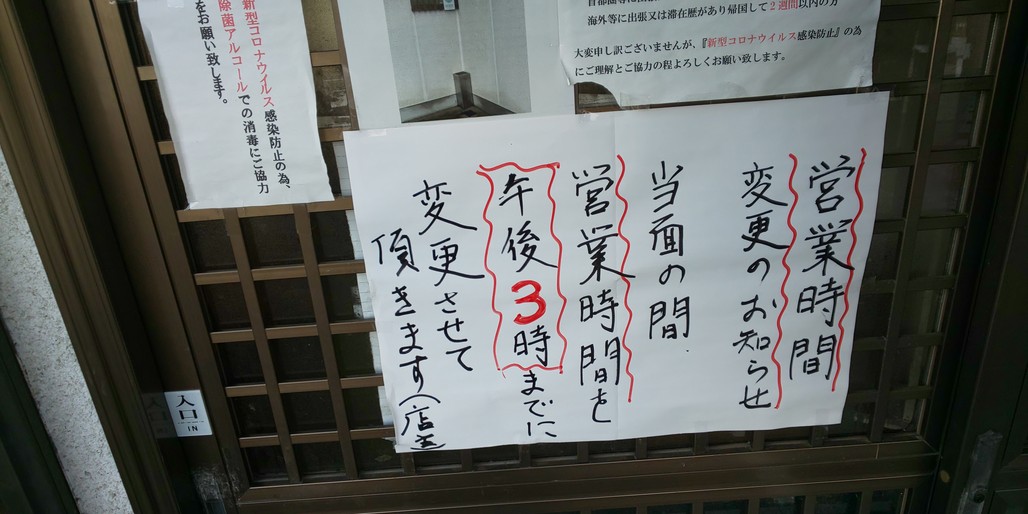 新型コロナウイルス感染防止の為、
除菌アルコールでの消毒にご協力
をお願い致します。
海外等に出張又は滞在歴があり帰国して2週間以内の方
大変申し訳ございませんが、『新型コロナウイルス感染防止』の為
にご理解とご協力の程よろしくお願い致します。
営業時間
変更のお知らせ
当面の間
営業時間を
午後3時までに
変更させて
頂きます(店主
入口
IN